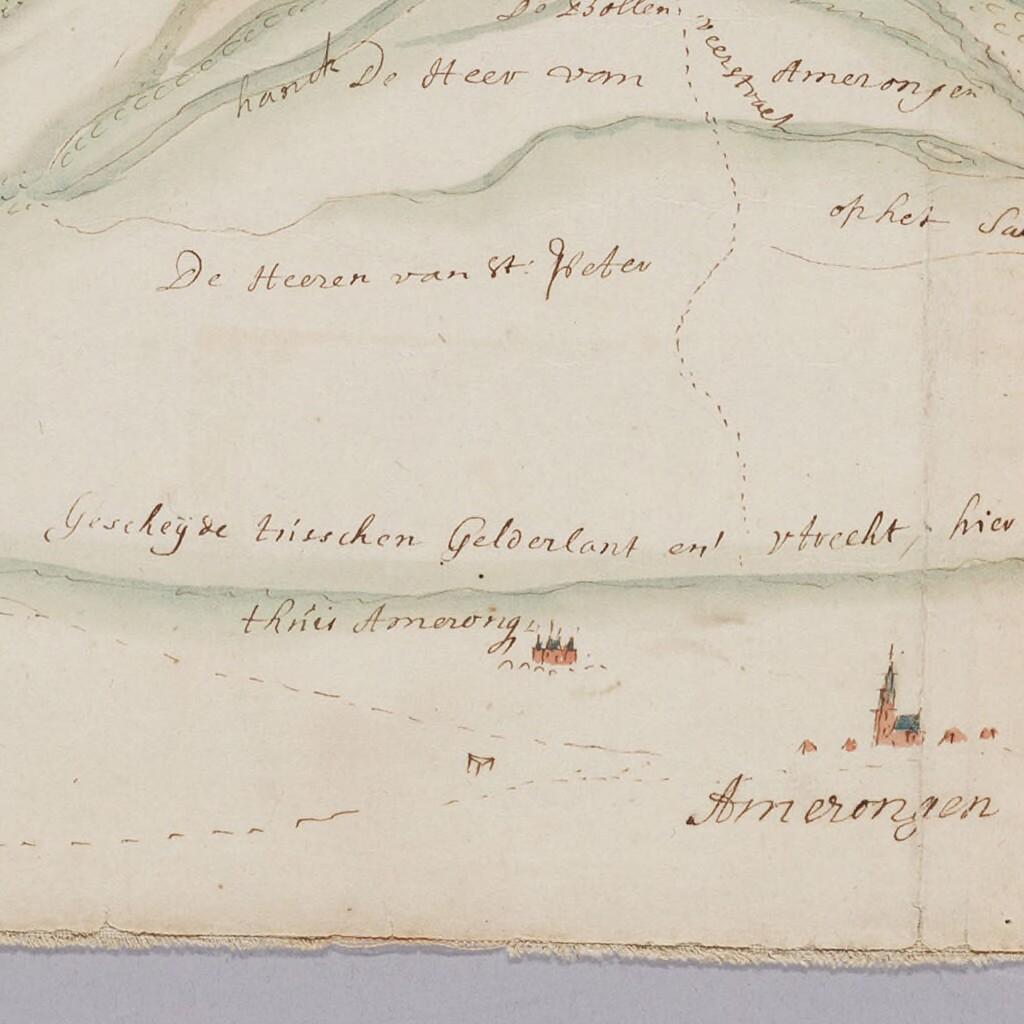 De Bollen
veerstraet
hanck De Heer van Amerongen
op het
De Heeren van St: Peter
Gescheÿde tusschen Gelderlant en Vtrecht, hier
thuis Amerong:
Amerongen